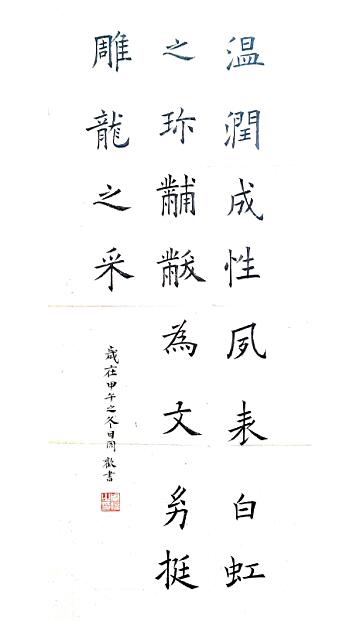 温潤成性夙表白虹
之珎黼黻為文夛挺
雕龍之采
歲在甲午之冬日周歡書